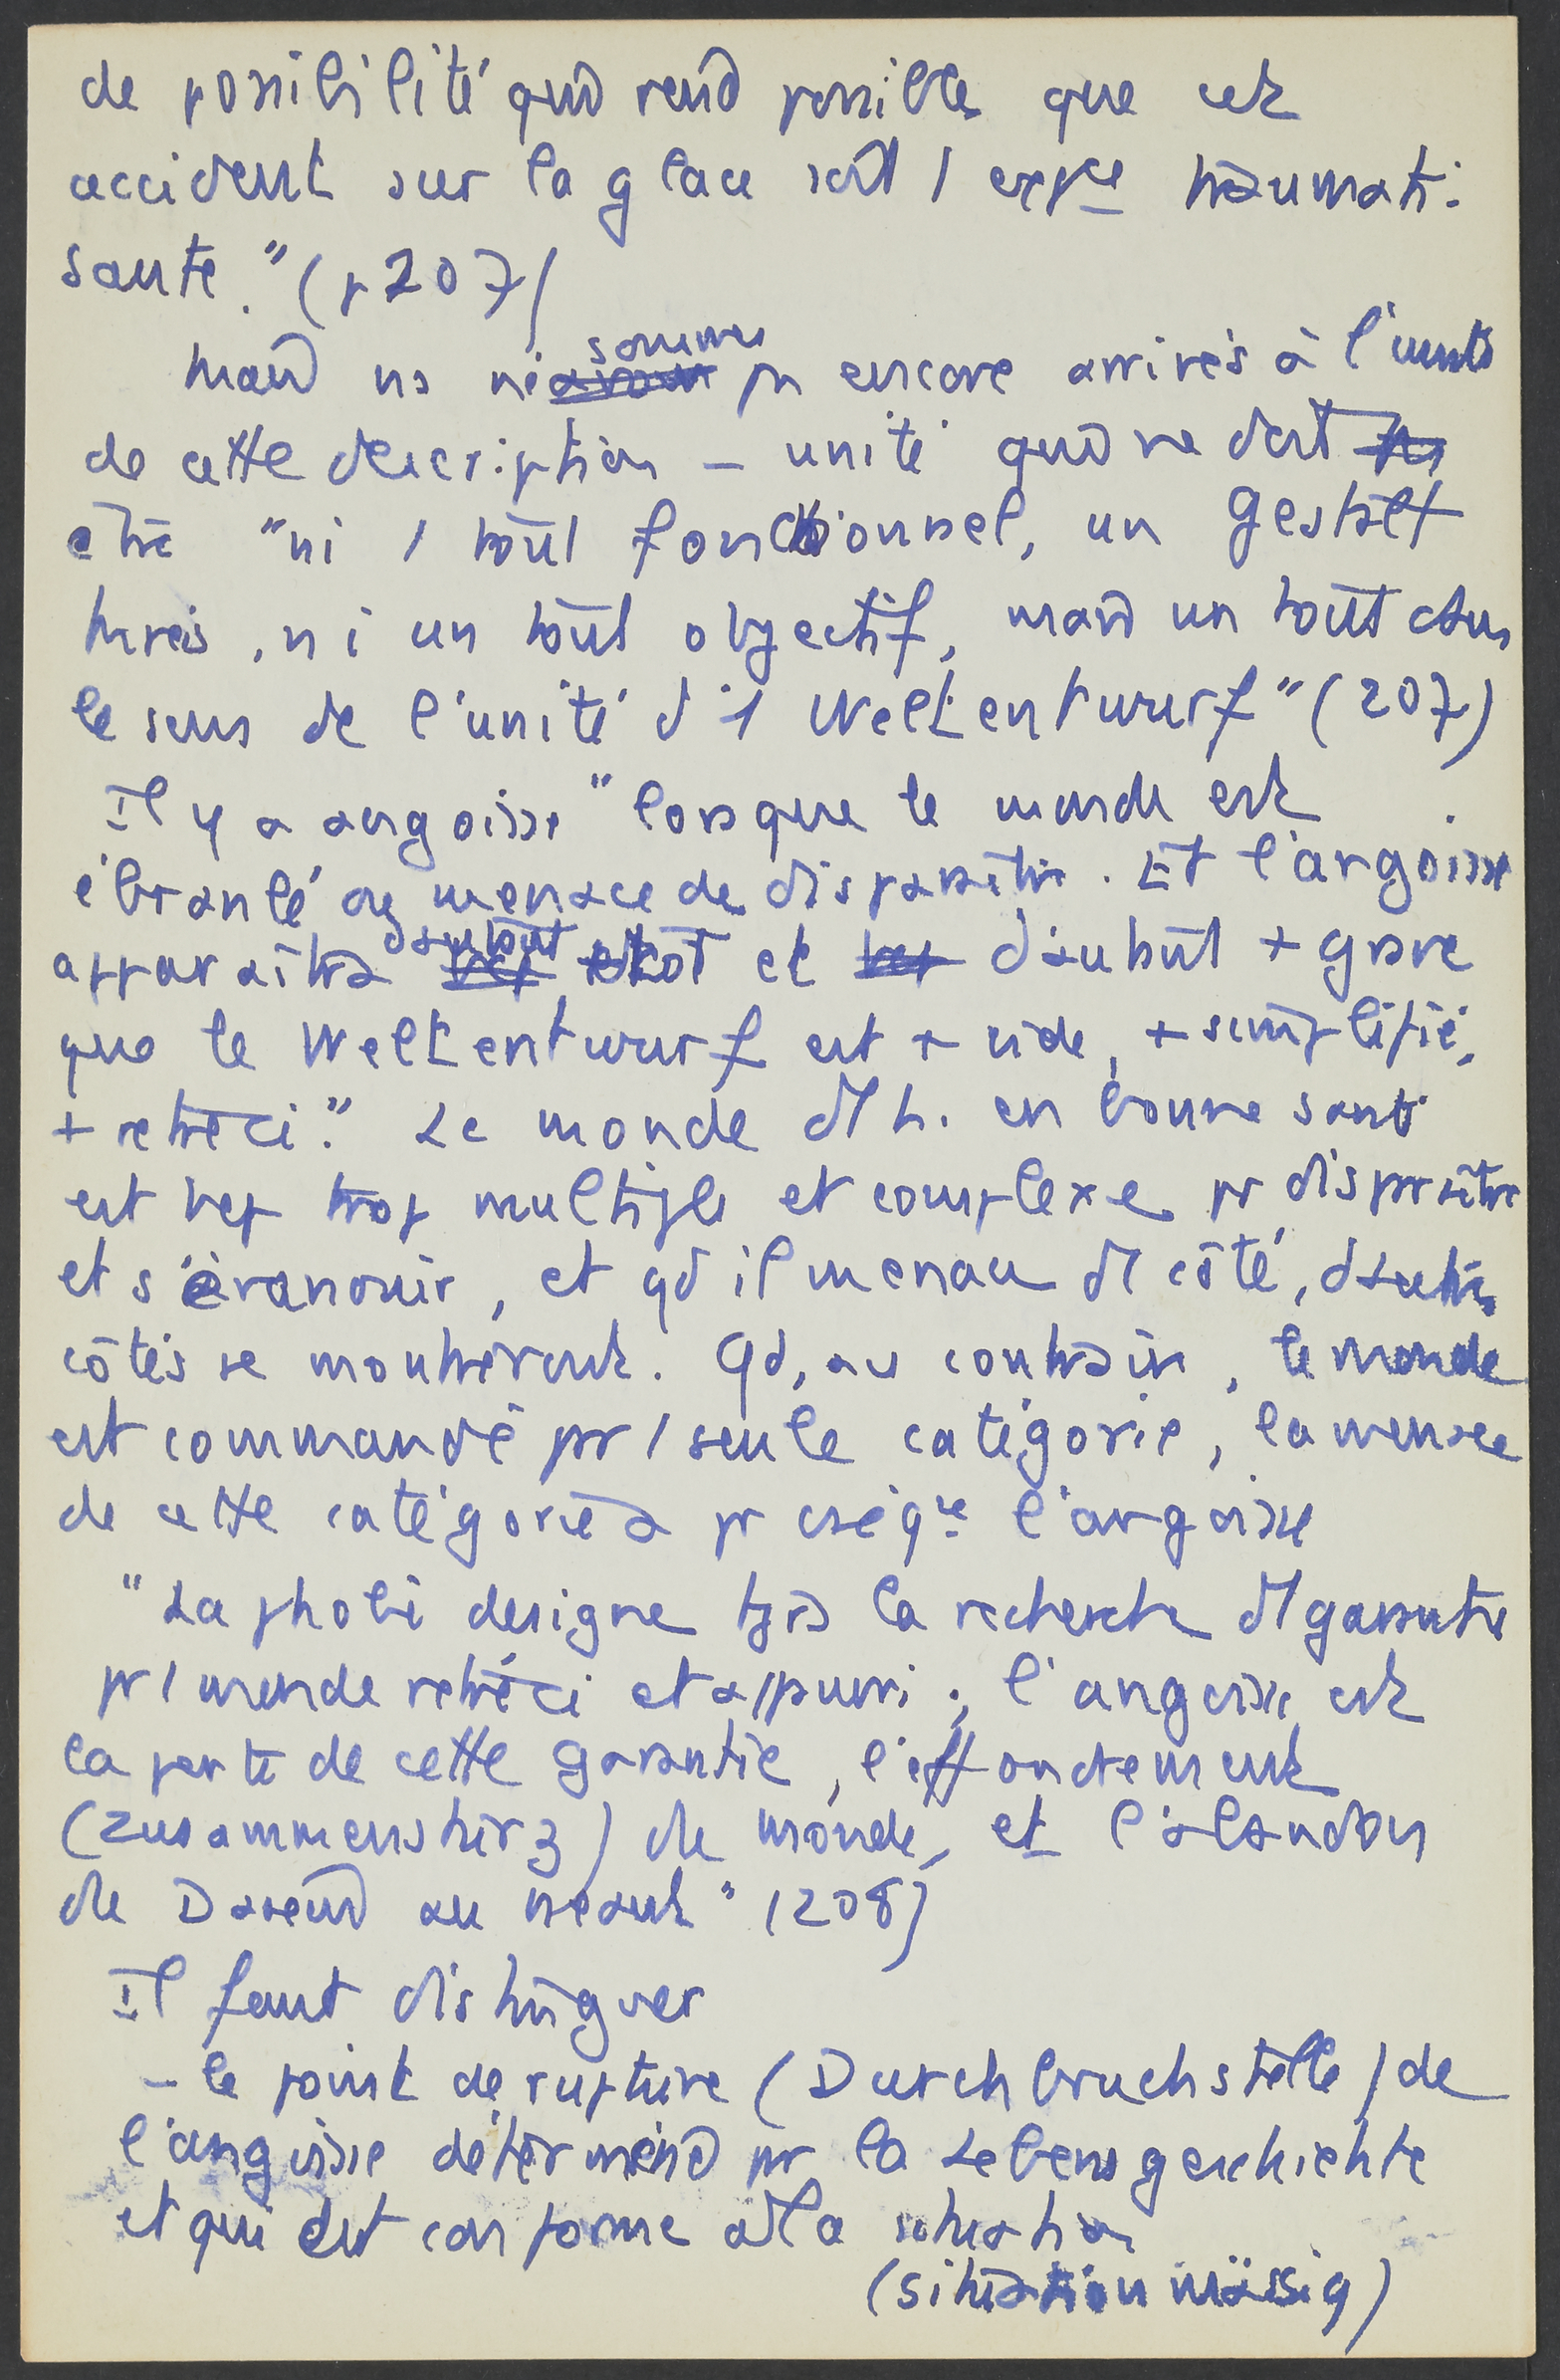 de possibilité qui rend possible que cet
accident sur la glace soit 1 expce traumati-
sante." (p 207)
Mais ns ne sommes ps encore arrivés à l'unité
de cette description – unité qui ne doit
être "ni 1 tout fonctionnel, un Gestalt
kreis, ni un tout objectif, mais un tout dans
le sens de l'unité d'1 Weltentwurf" (207)
Il y a angoisse "lorsque le monde est
ébranlé ou menace de disparaître. Et l'angoisse
apparaîtra d'autant + tôt et d'autant + grave
que le Weltentwurf est + vide, + simplifié,
+ rétréci." Le monde d'1 h. en bonne santé
est bcp trop multiple et complexe pr disparaître
et s'évanouir, et qd il menace d'1 côté, d'autres
côtés se montreront. Qd, au contraire, le monde
est commandé par 1 seule catégorie, la menace
de cette catégorie a pr cséqce l'angoisse
"La phobie désigne tjrs la recherche d'1 garantie
pr 1 monde rétréci et appauvri ; l'angoisse est
la perte de cette garantie, l'effondrement
(Zusammensturz) du monde, et l'abandon
du Dasein au néant" (208)
Il faut distinguer
– le point de rupture (Durchbruchstelle) de
l'angoisse déterminé par la Lebensgeschichte
et qui est conforme à la situation
(situation mässig)